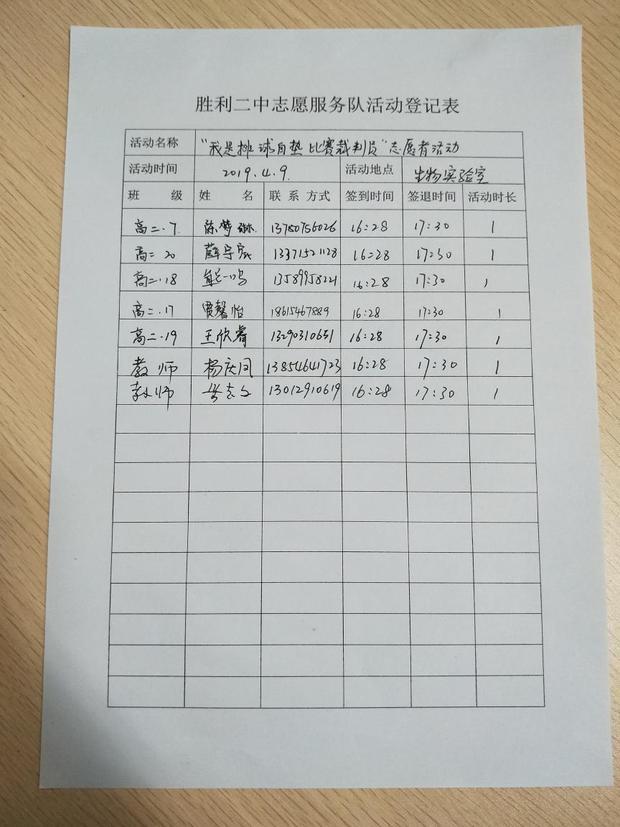 胜利二中志愿服务队活动登记表
活动名称 "我是排球自垫比赛裁判员"志愿者活动
活动时间 2019.4.9. 活动地点 生物实验室
班级 姓名 联系方式 签到时间 签退时间 活动时长
高二.7. 陈梦琳 13780756026 16:28 17:30 1
高二 20 薛宇宸 13371521128 16:28 17:30 1
高二.18 13589958221 16:28 17:30 1
高二.17 贾馨怡 18615467889 16:28 17:30 1
高二.19 王欣睿 13290310651 16:28 17:30 1
教师 杨庆同 13854641723 16:28 17:30 1
教师 13012910619 16:28 17:30 1